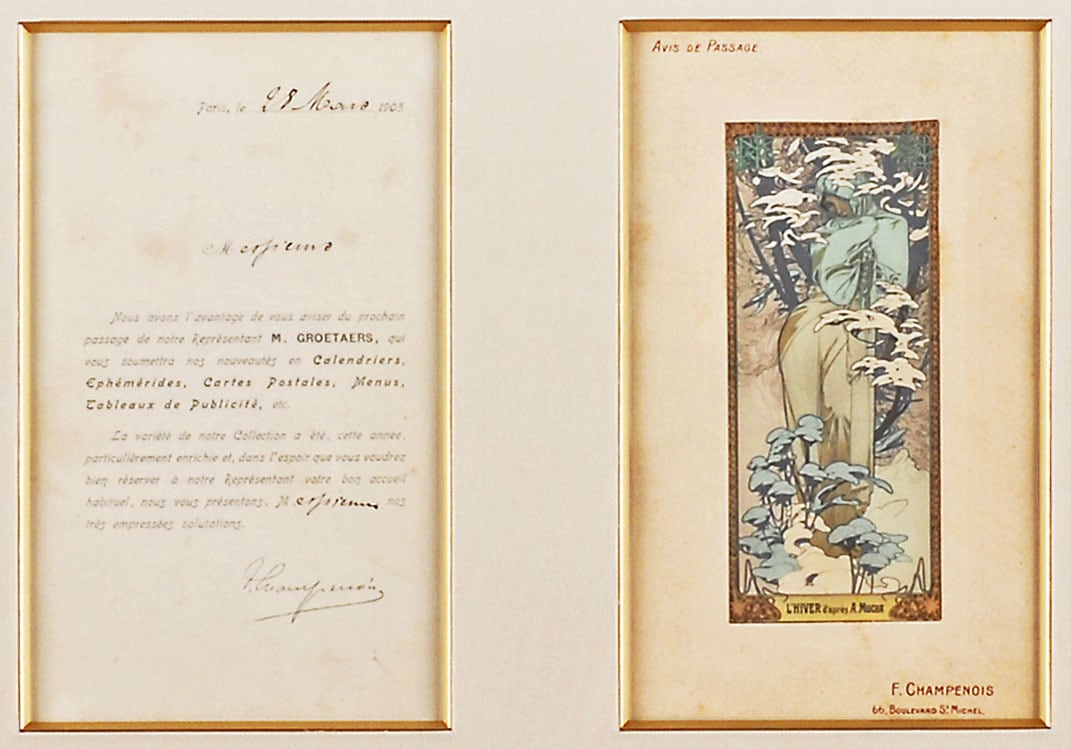 Paris, le 28 Mars 1905
Messieurs
Nous avons l'avantage de vous aviser du prochain
passage de notre Représentant M. GROETAERS, qui
vous soumettra nos nouveautés en Calendriers,
Ephémérides, Cartes Postales, Menus,
Tableaux de Publicité, etc.
La variété de notre Collection a été, cette année,
particulièrement enrichie et, dans l'espoir que vous voudrez
bien réserver à notre Représentant votre bon accueil
habituel, nous vous présentons, Messieurs nos
très empressées salutations.
F. Champenois
AVIS DE PASSAGE.
L'HIVER d'après A. MUCHA
F. CHAMPENOIS
66, BOULEVARD ST MICHEL.